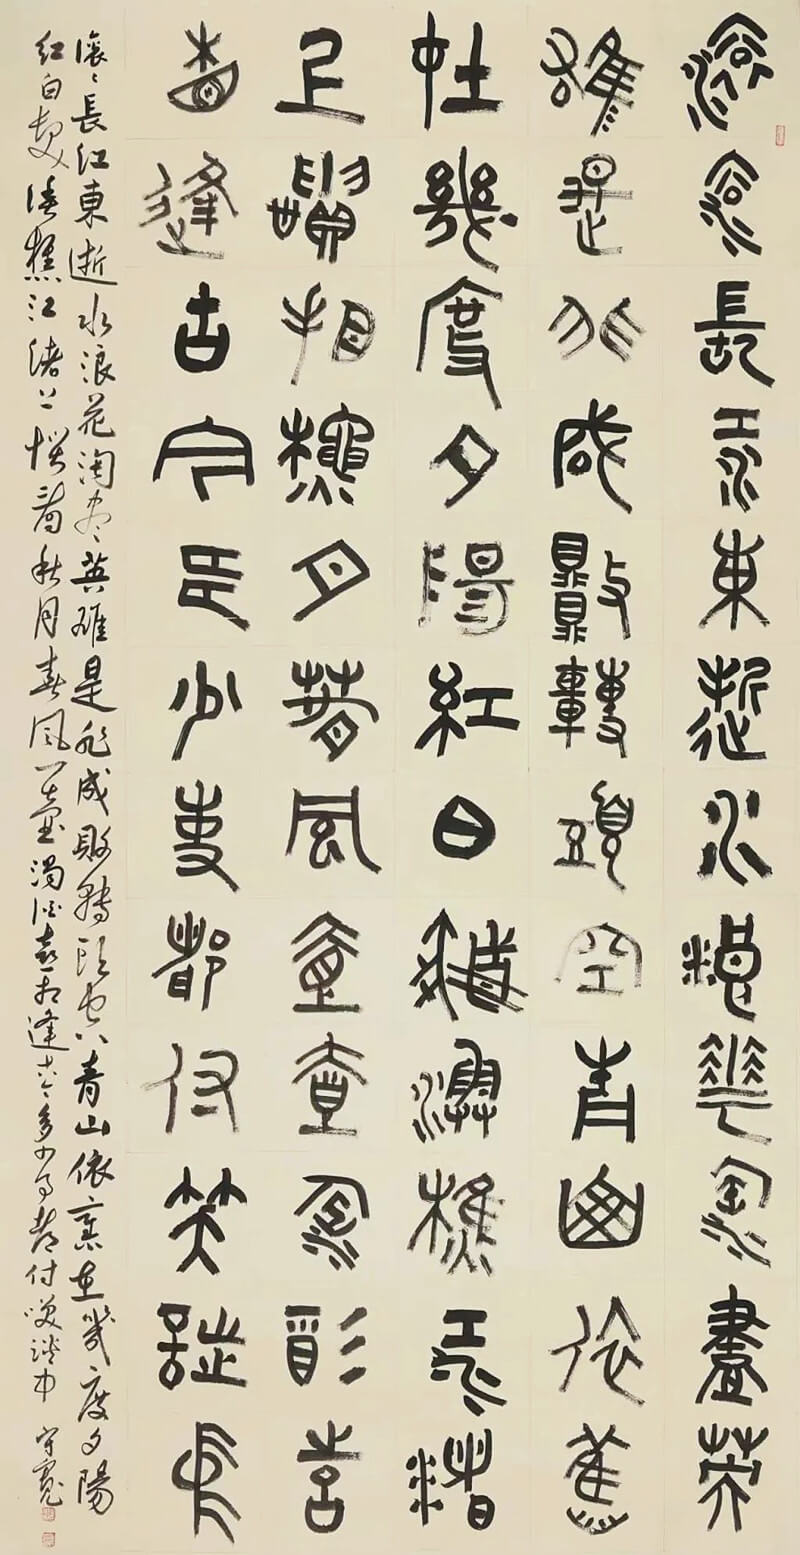 滾滾長江東逝水浪花滾盡英
雄是非成敗轉頭空青山依舊
在幾度夕陽紅白髮漁樵江渚
上慣看秋月春風壹壺濁酒喜
相逢古今多少事都付笑談中
滾〻長江東逝水浪花淘盡英雄是非成敗轉頭空青山依舊在幾度夕陽
紅白髮漁樵江渚上慣看秋月春風一壺濁酒喜相逢古今多少事都付笑談中 守寬